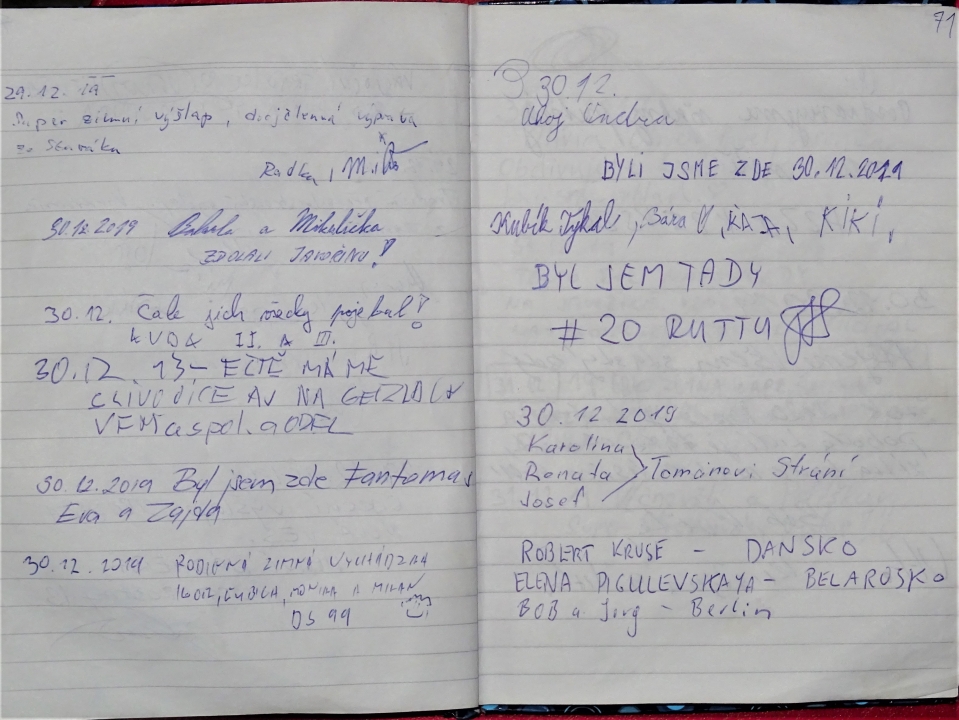 29.12. 19
Super zimní výšlap, dvojčlenná výprava
ze Slováka
Radka,
30.12.2019 a Mikulička
ZDOLALI JAVOŘINU!
30.12. jich všecky!
II. A III.
30.12. 13- EŠTĚ MÁME
NA
VEM a spol. a ODEL
30.12.2019 Byl jsem zde Fantomas
Eva a Zajda
30.12.2019 RODINNÁ ZIMNÁ VYCHÁDZKA
IGOR, ĽUBICA, MONIKA A MILAN
71
30.12.
Ahoj Ondra
BYLI JSME ZDE 30.12.2019
Kubík Tykal, Bára V, KÁJA, KIKI,
BYL JSEM TADY
# 20 RUTTU
30.12 2019
Karolina
Renata Tomanovi Strání
Josef
ROBERT KRUSE - DANSKO
ELENA PIGULEVSKAYA - BELAROSKO
BOB a Jorg - Berlin